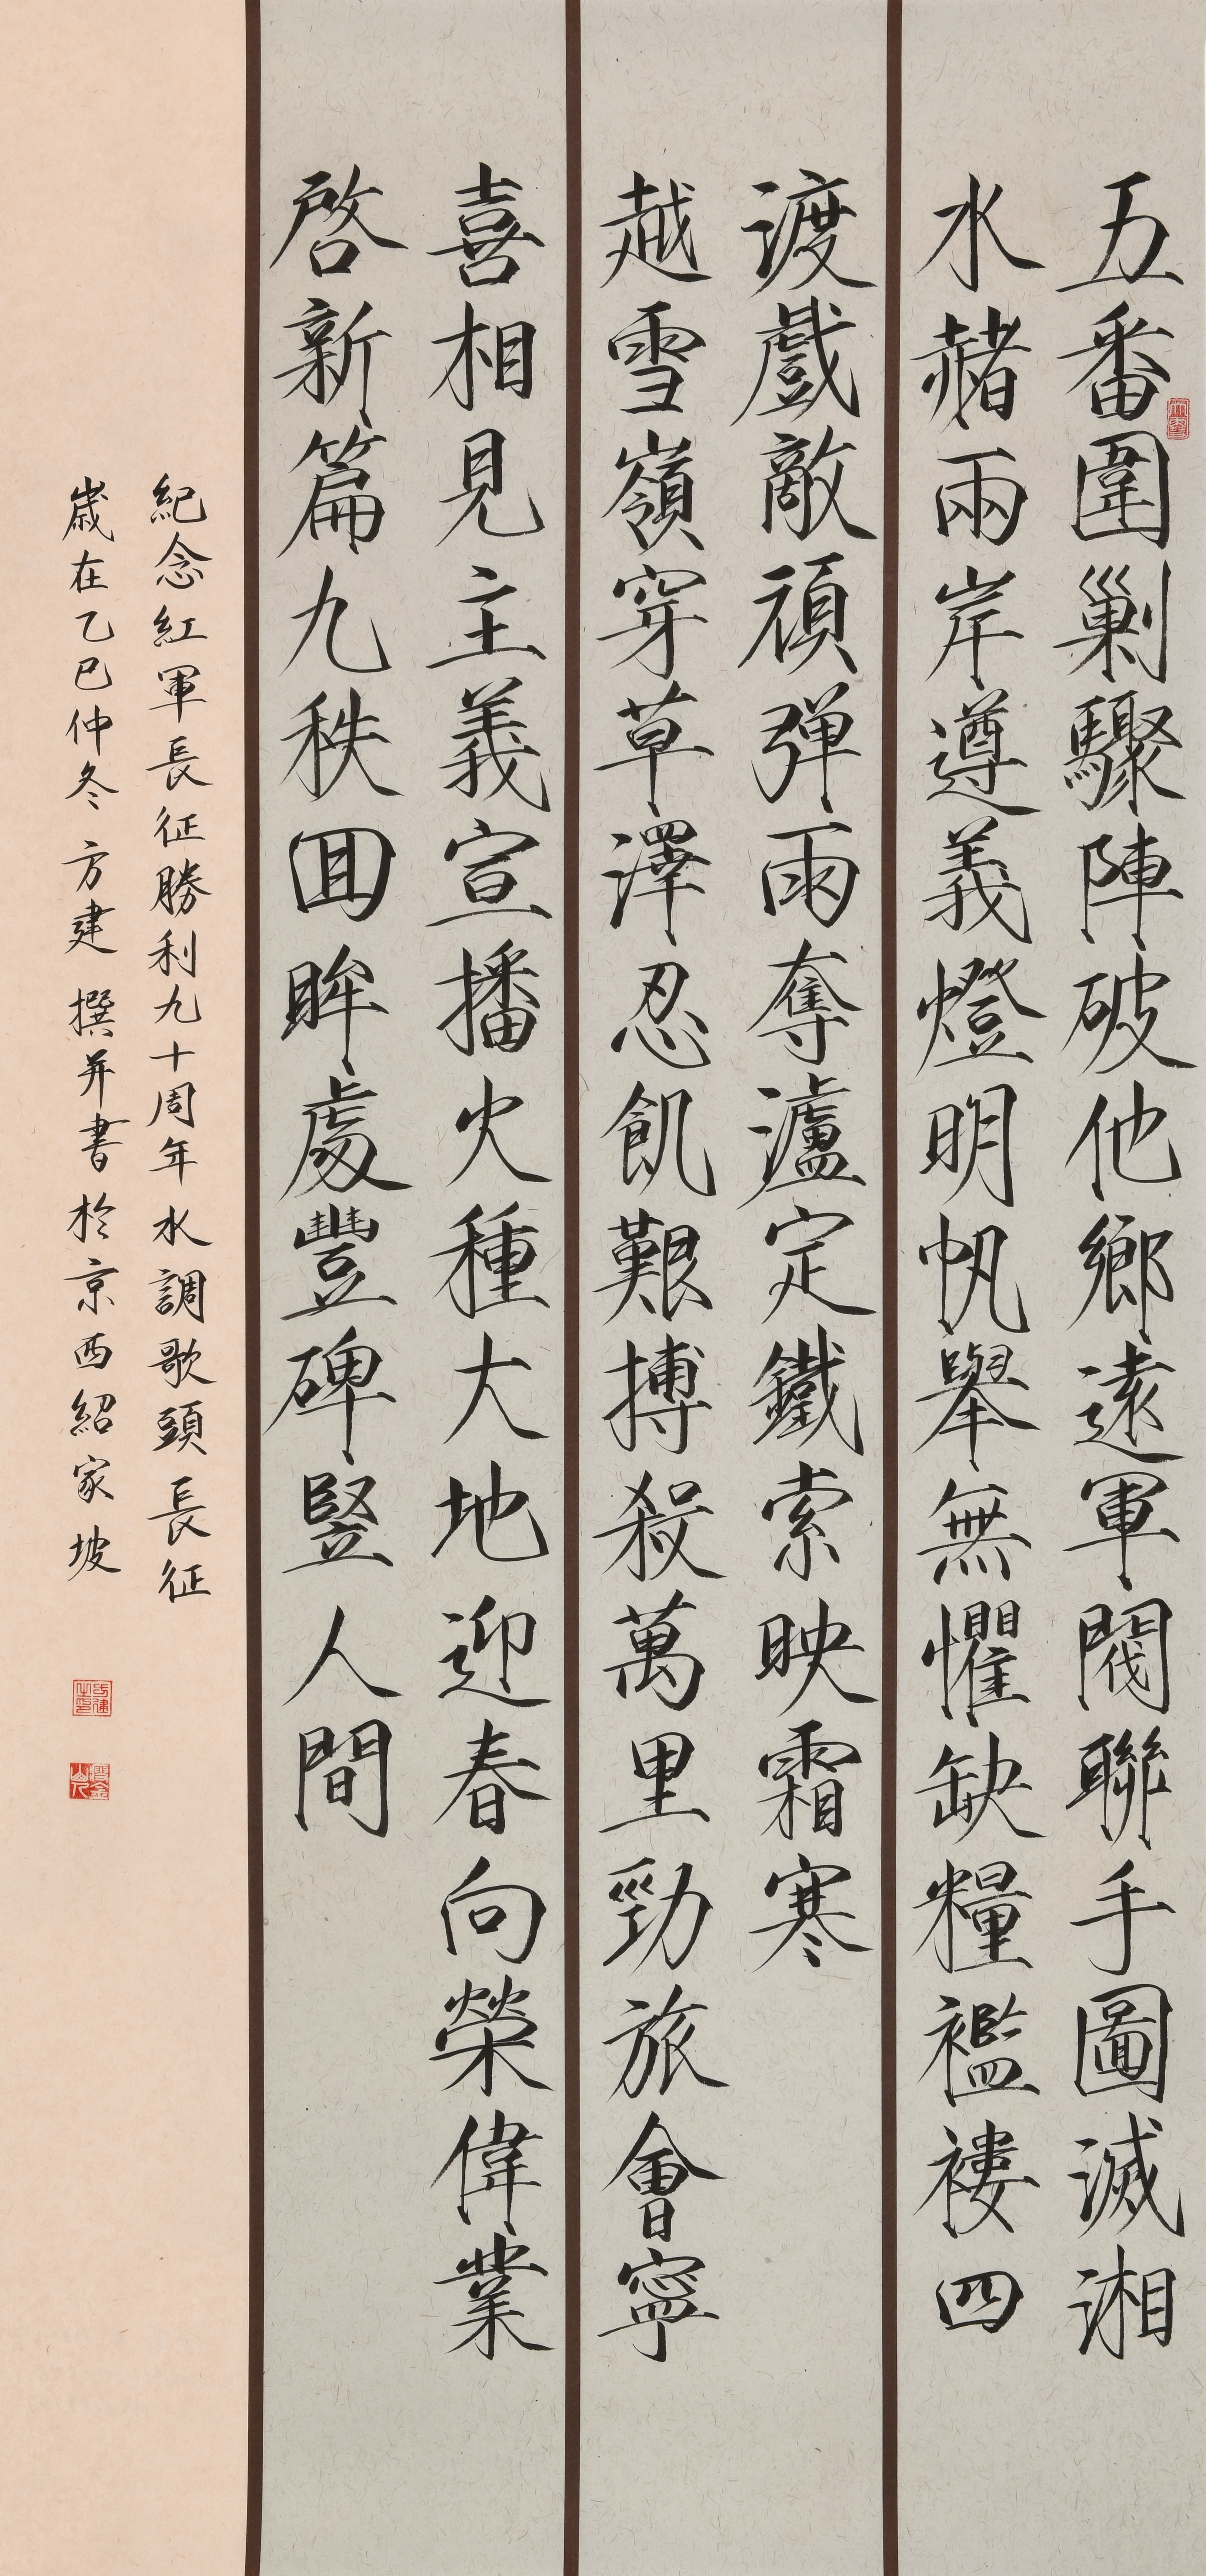 五番圍剿驟陣破他鄉遠軍閥聯手圖滅湘
水赭兩岸遵義燈明帆舉無懼缺糧襤褸四
渡戲敵頑彈雨奪瀘定鐵索映霜寒
越雪嶺穿草澤忍飢艱搏殺萬里勁旅會寧
喜相見主義宣播火種大地迎春向榮偉業
啓新篇九秩回眸處豐碑豎人間
紀念紅軍長征勝利九十周年水調歌頭長征
歲在乙巳仲冬方建撰并書於京西紹家坡